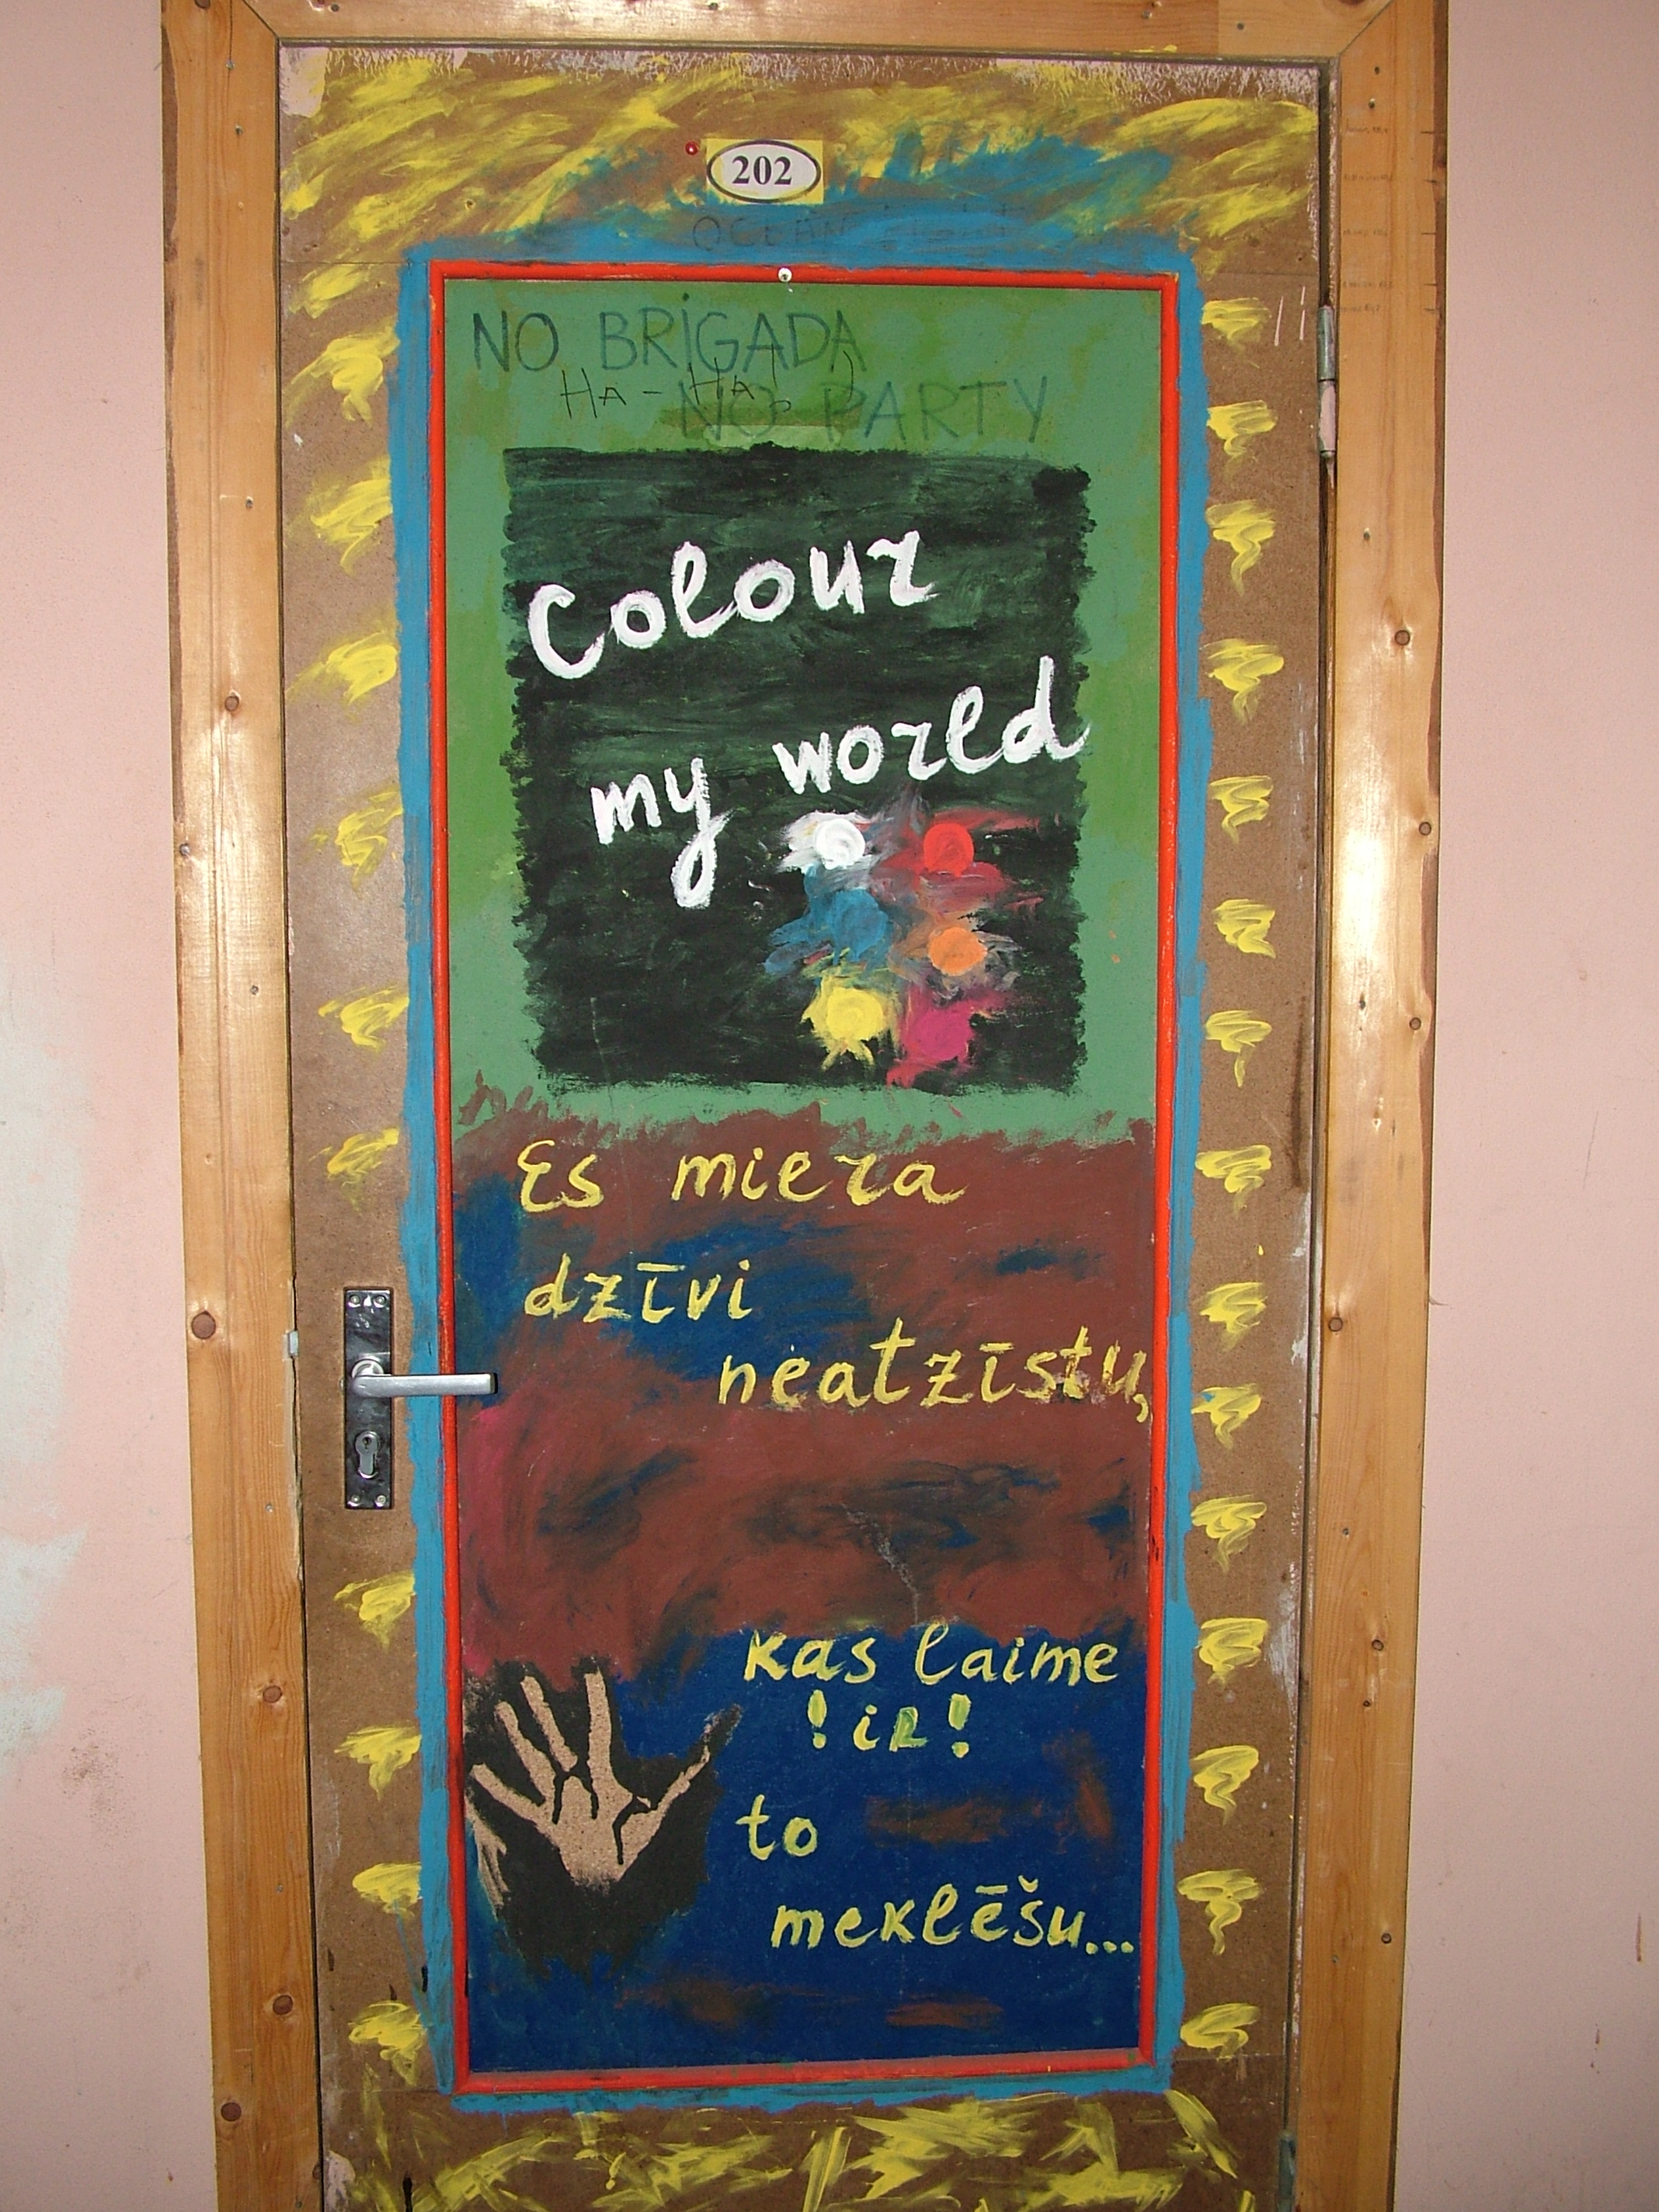 202
OCEAN
NO BRIGADA
HA-HA
NO PARTY
Colour
my world
Es miera
dzīvi
neatzīstu,
kas laime
!iR!
to
meklēšu...